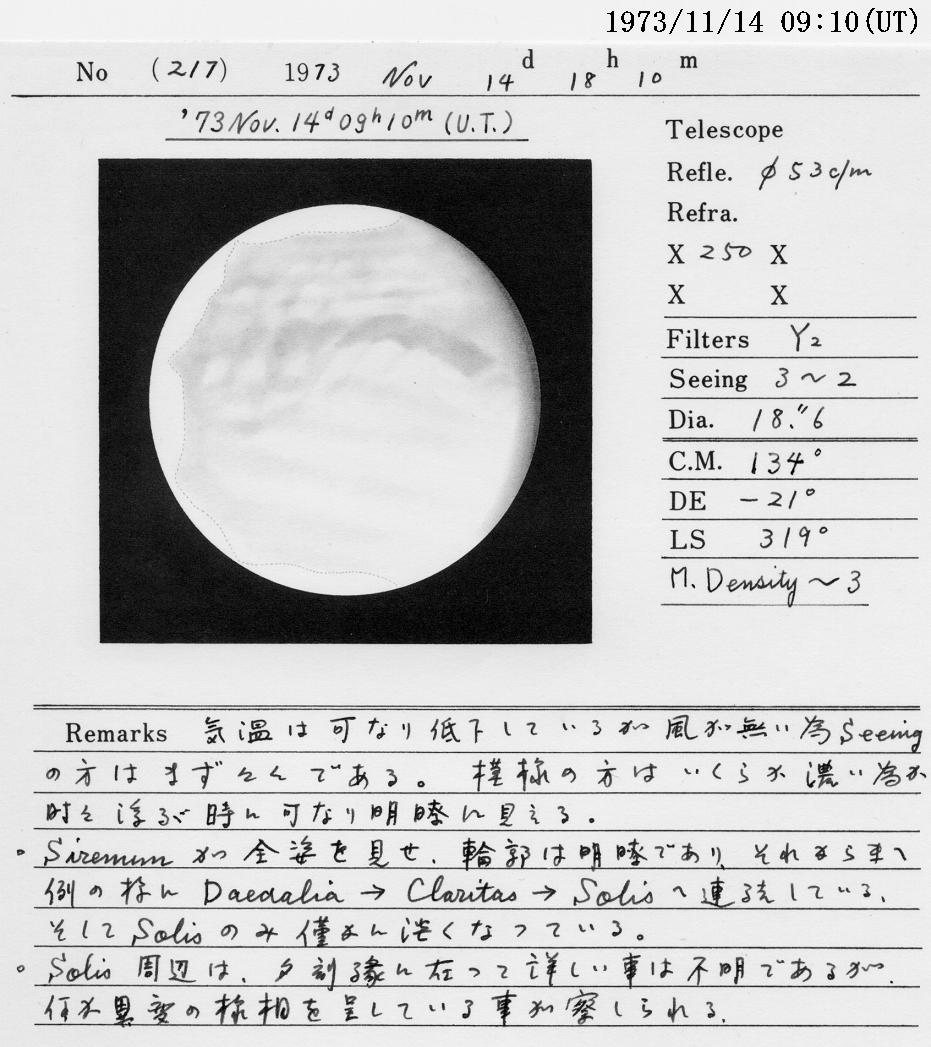 1973/11/14 09:10(UT)
No (217) 1973 Nov 14d 18h 10m
'73 Nov. 14d 09h 10m (U.T.)
Telescope
Refle. φ 53 c/m
Refra.
X 250 X
X X
Filters Y2
Seeing 3 ~ 2
Dia. 18."6
C.M. 134°
DE -21°
LS 319°
M. Density ~ 3
Remarks 気温は可なり低下しているが風が無い為Seeing
の方はまずまずである。 模様の方はいくらか濃い為か
時々浮ぶ時に可なり明瞭に見える。
。Sirenum が全姿を見せ、輪郭は明瞭であり、それから東へ
例の様に Daedalia → Claritas → Solis へ連続している、
そして Solis のみ僅かに淡くなっている。
。Solis 周辺は、夕刻縁に在って詳しい事は不明であるが、
何か異変の様相を呈している事が察しられる。